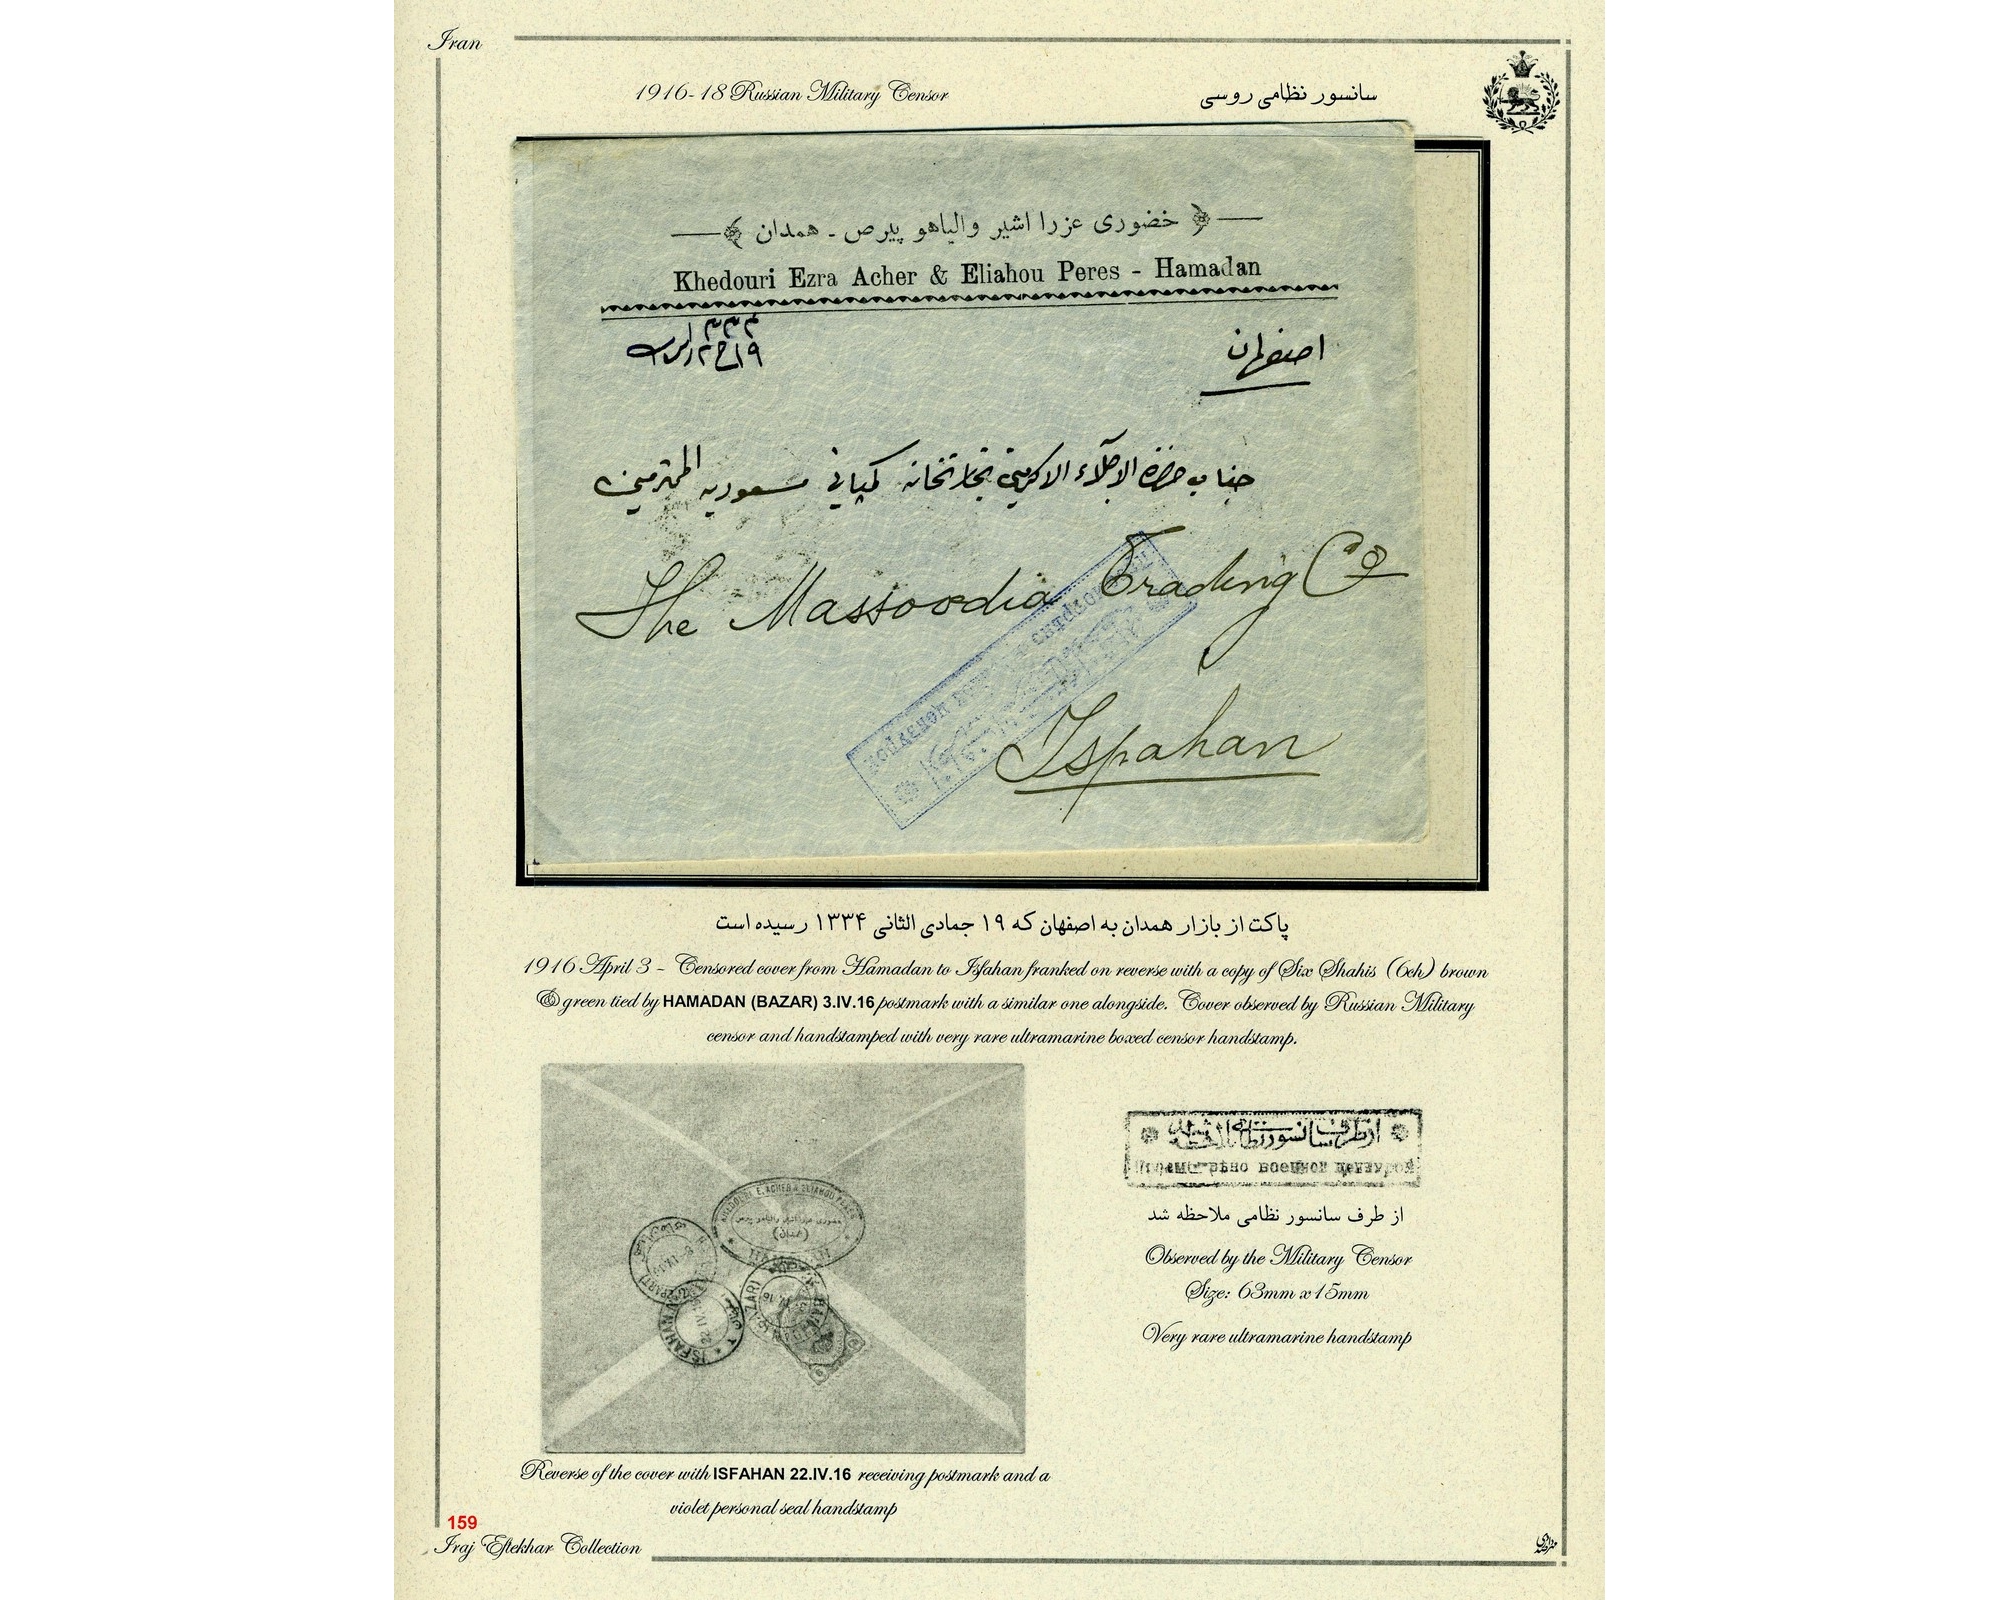 Iran
1916-18 Russian Military Censor
سانسور نظامی روسی
خضوری عزرا اشیر والیاهو پیرص - همدان
Khedouri Ezra Acher & Eliahou Peres - Hamadan
اصفهان
جناب تجارتخانه کمپانی مسعودیه المحترمین
The Massoodia Trading Co
Ispahan
پاکت از بازار همدان به اصفهان که ۱۹ جمادی الثانی ۱۳۳۴ رسیده است
1916 April 3 - Censored cover from Hamadan to Isfahan franked on reverse with a copy of Six Shahis (6ch) brown
& green tied by HAMADAN (BAZAR) 3.IV.16 postmark with a similar one alongside. Cover observed by Russian Military
censor and handstamped with very rare ultramarine boxed censor handstamp.
KHEDOURI E. ACHER & ELIAHOU PERES
(همدان)
HAMADAN
ISFAHAN
22 IV
از طرف سانسور نظامی ملاحظه شد
Observed by the Military Censor
Size: 63mm x 15mm
Very rare ultramarine handstamp
Reverse of the cover with ISFAHAN 22.IV.16 receiving postmark and a
violet personal seal handstamp
159
Iraj Eftekhar Collection